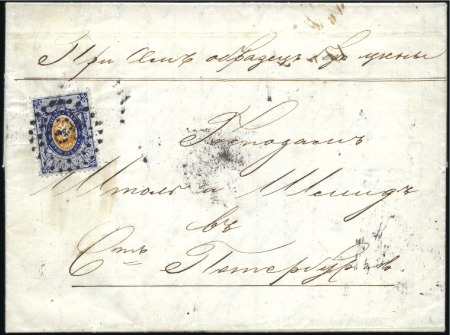 При семъ образецъ муки
Господамъ
Штоль и Шмидъ
въ
Стъ Петербургъ.